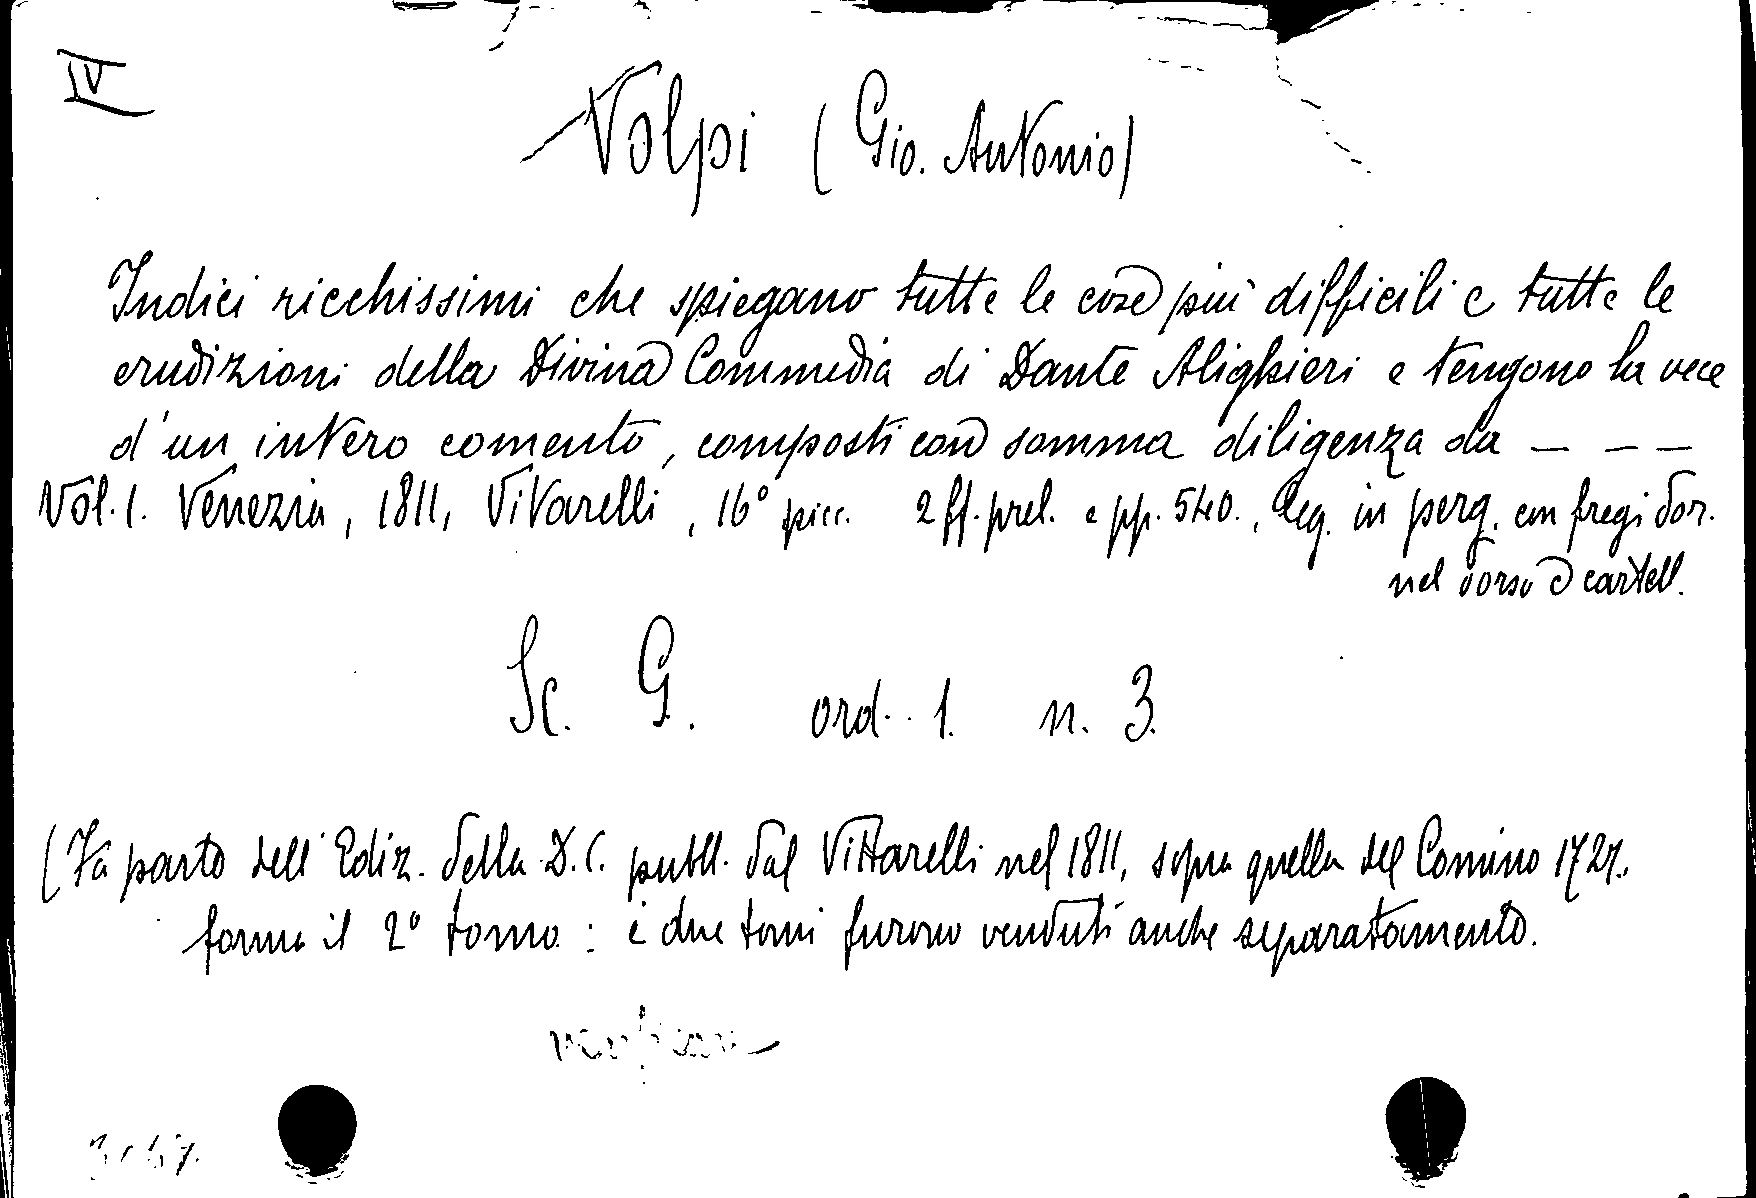 IV
Volpi (Gio. Antonio)
Indici ricchissimi che spiegano tutte le cose più difficili e tutte le
erudizioni della Divina Commedia di Dante Alighieri e tengono la vece
d'un intero comento, composti con somma diligenza da _ _ _
Vol. 1. Venezia, 1811, Vitarelli, 16° picc. 2 ff. prel. e pp. 540., leg. in perg. con fregi dor.
nel dorso e cartell.
Sc. G. ord. 1. n. 3.
(Fa parte dell'Ediz. della D.C. pubbl. dal Vittarelli nel 1811, sopra quella del Comino 1727.
forma il 2° tomo: i due tomi furono venduti anche separatamente.